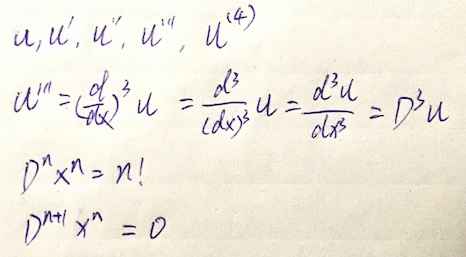 u, u', u'', u''', u⁽⁴⁾
u''' = (d/dx)³ u = d³/(dx)³ u = d³u/dx³ = D³u
Dⁿxⁿ = n!
Dⁿ⁺¹ xⁿ = 0